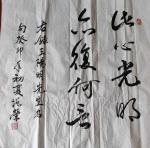 此心光明
亦復何言
右錄王陽明先生名
句癸卯年初夏